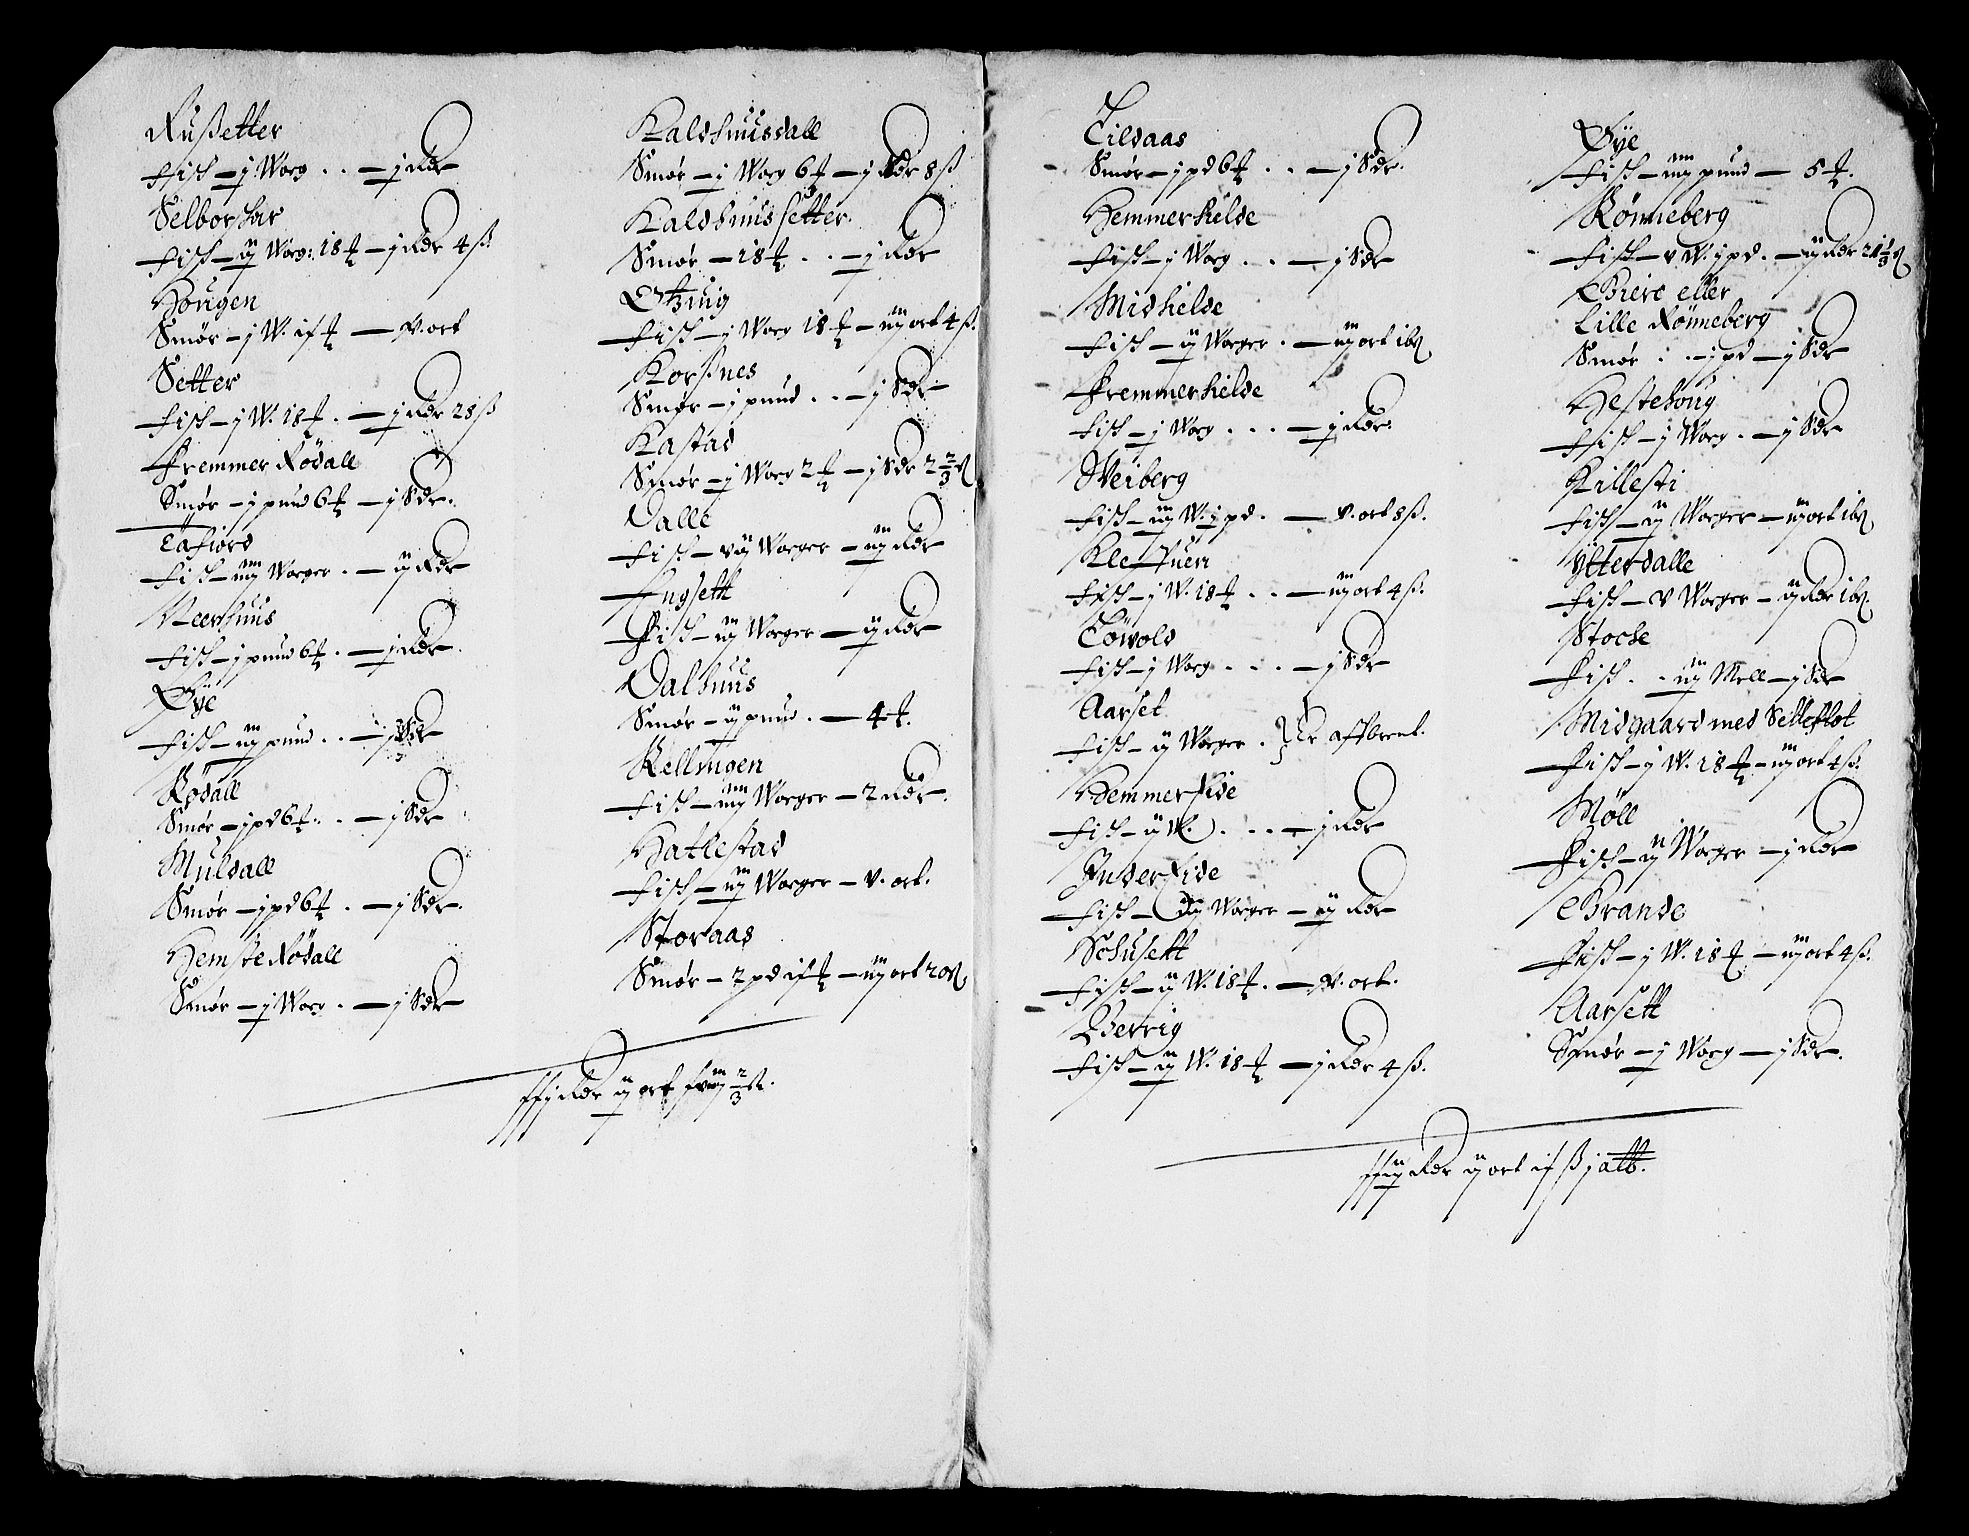 Rußetter
Fisk - j Woeg . . - j Rdr
Selborhar
Fisk - ij Woeg: 18 # - j Rdr 4 ß
Hougen
Smør - j W. if # - v. ort
Setter
Fisk - j W. 18 # . - j Rdr 28 ß
Fremmer Rødall
Smør - j pund 6 # - j Rdr.
Tafiord
Fisk - iiij Woeger . - ij Rdr
Veerhuus
Fisk - j pund 6 # . - j Rdr.
Øye
Fisk - iij pund . . - j Rdr
Rødall
Smør - j pd 6 # . . - j Rdr
Muldall
Smør - j pd 6 # . - j Rdr.
Hemste Rødall
Smør - j Woeg . - j Rdr
Kaldhuusdall
Smør - j Woeg 6 # - j Rdr 8 ß
Kaldhuus setter
Smør - 18 # . . - j Rdr
Fisk - j Woeg 18 # - iij ort 4 ß.
Korßnes
Smør - j pund . . - j Rdr
Kastad
Smør - j Woeg 2 # - j Rdr 2 2/3 ß
Dalle
Fisk - vij Woeger - iij Rdr
Engsett
Fisk - iij Woeger - ij Rdr
Dalhuus
Smør - ij pund . - 4 #.
Rellingen
Fisk - iiij Woeger - 2 Rdr.
Hatlestad
Fisk - iij Woeger - v. ort.
Storaas
Smør - 2 pd if # - iij ort 20 ß
Rdr ij ort 2/3 ß.
Lildaas
Smør - j pd 6 # . . - j Rdr.
Hemmerhielde
Fisk - j Woeg . . - j Rdr
Midhielde
Fisk - ij Woeger . - iij ort 16 ß
Fremmerhielde
Fisk - j Woeg . . . - j Rdr.
Weiberg
Fisk - iij W. j pd . - v. ort 8 ß.
Fisk - j W. 18 # . . - iij ort 4 ß.
Löwold
Fisk - j Woeg . . . - j Rdr
Aarset
Fisk - ij Woeger . } Er affbrent.
Hemmerside
Fisk - ij W. . . . - j Rdr
Inderside
Fisk - iij Woeger - ij Rdr
Schusett
Fisk - ij W. 18 # . - v. ort.
Berrig
Fisk - ij W. 18 # - j Rdr 4 ß.
Øye
Fisk - iiij pund - 5 #.
Rønneberg
Fisk - v W. j pd. - ij Rdr 21 1/3 ß
Bierc eller
Lille Rønneberg
Smør . . - j pd - j Rdr
Hestehoug
Fisk - j Woeg . - j Rdr
Killesti
Fisk - ij Woeger - iij ort 16 ß
Ytterdalle
Fisk - v Woeger - ij Rdr 16 ß.
Stoche
Fisk . . iij Mell - j Rdr
Midgaard med Selleflot
Fisk - j W. 18 # - iij ort 4 ß.
Möll
Fisk - ij Woeger - j Rdr
Brande
Fisk - j W. 18 # - iij ort 4 ß.
Aarsett
Smør - j Woeg - j Rdr.
Rdr ij ort if ß j alb.